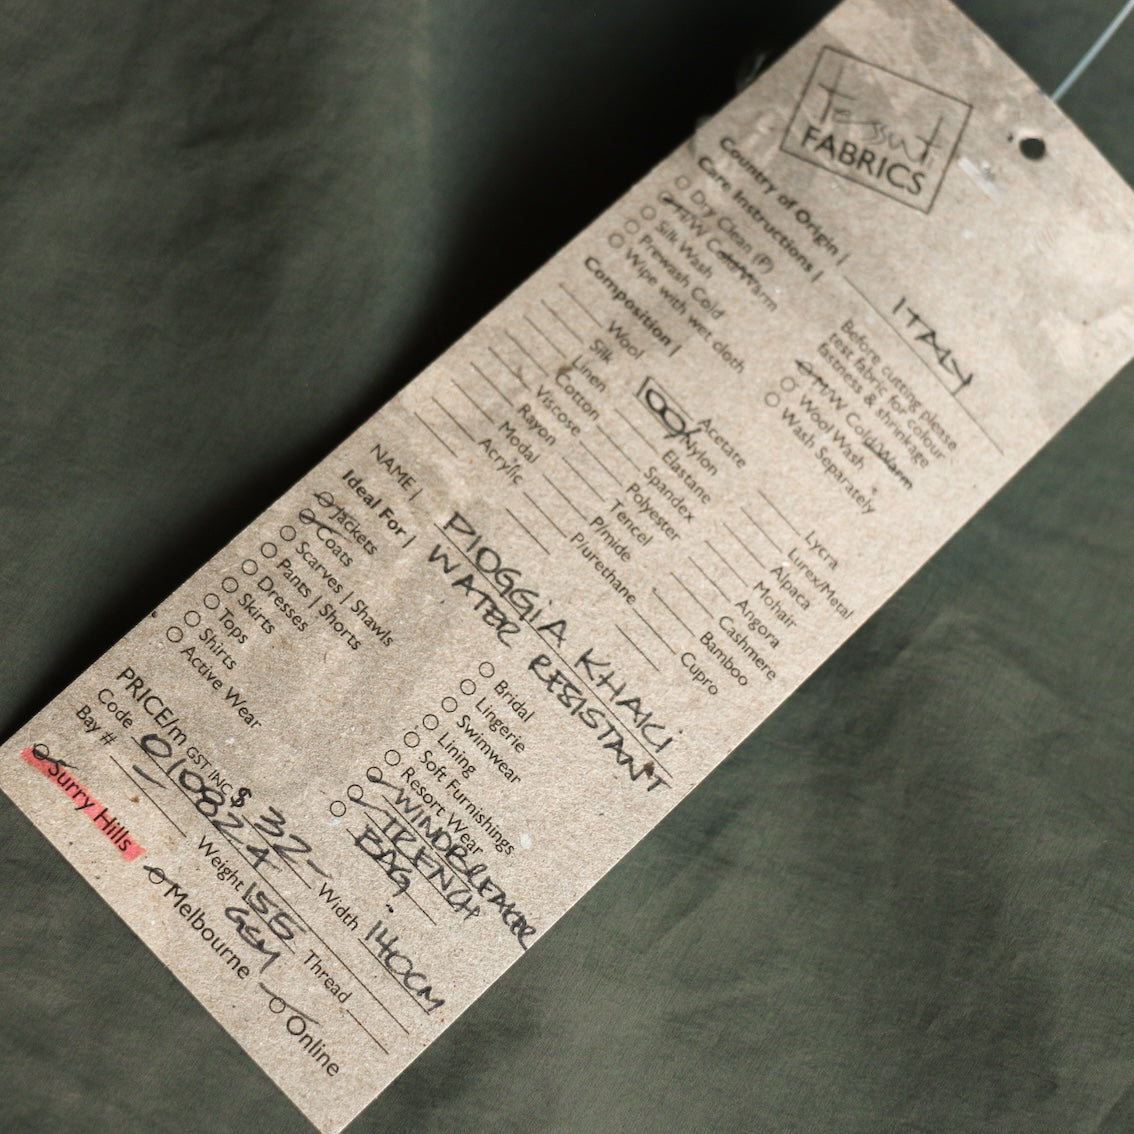 Tessuti
FABRICS
Country of Origin | ITALY
Care Instructions |
Dry Clean (P)
H/W Cold/Warm
Silk Wash
Prewash Cold
Wipe with wet cloth
Before cutting please
test fabric for colour
fastness & shrinkage
M/W Cold/Warm
Wool Wash
Wash Separately
Composition |
Wool
Silk
Linen
Cotton
Viscose
Rayon
Modal
Acrylic
Acetate
100% Nylon
Elastane
Spandex
Polyester
Tencel
P/mide
P/urethane
Lycra
Lurex/Metal
Alpaca
Mohair
Angora
Cashmere
Bamboo
Cupro
NAME | PIOGGIA KHAKI
WATER RESISTANT
Ideal For |
Jackets
Coats
Scarves | Shawls
Pants | Shorts
Dresses
Skirts
Tops
Shirts
Active Wear
Bridal
Lingerie
Swimwear
Lining
Soft Furnishings
Resort Wear
WINDBREAKER
TRENCH
BAG
PRICE/m GST INC $ 32- Width 140CM
Code 010824 Weight 155 GSM Thread
Bay #
Surry Hills Melbourne Online